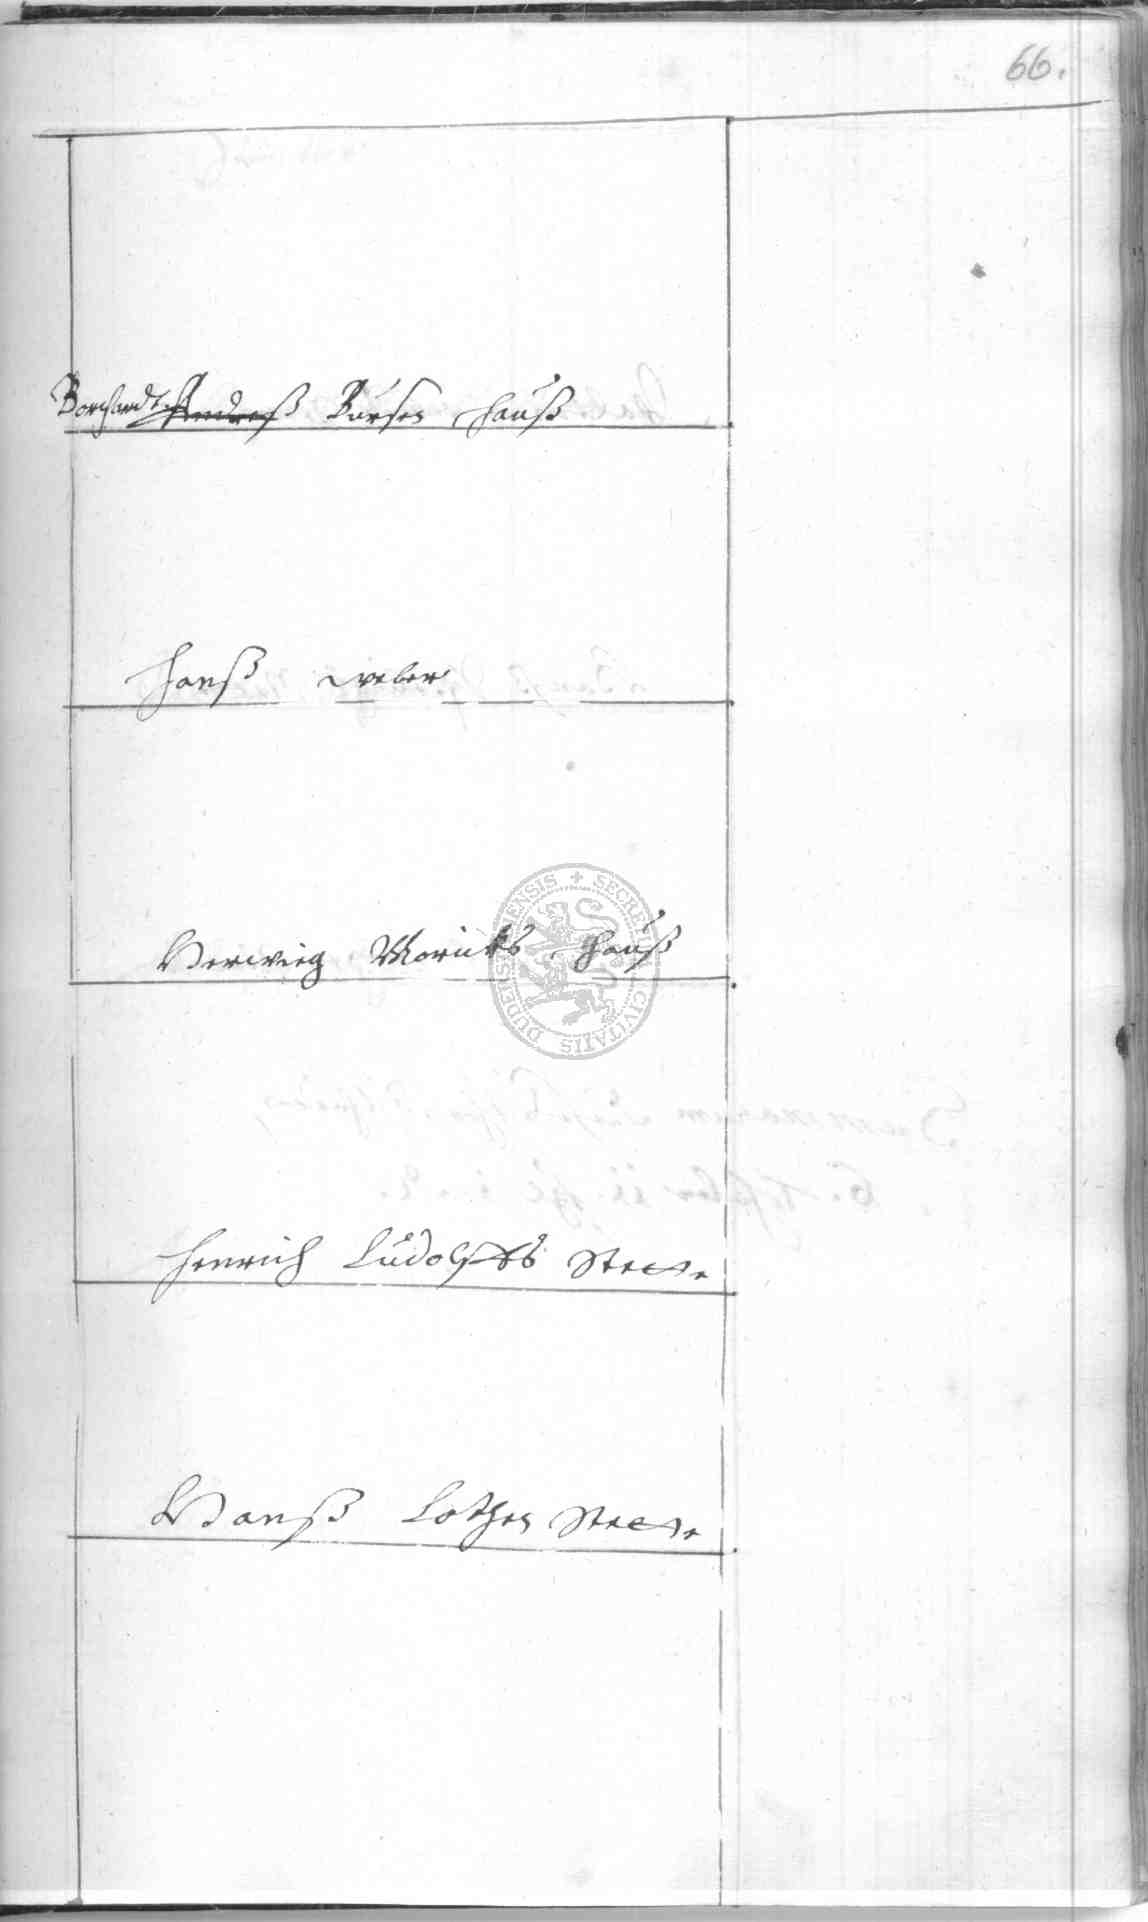 66.
Borchardt Andreß Bursen Hauß
Hanß Weber
Herwieg Moricks Hauß
Henrich Ludolffs Stette
Hanß Lothen Stette
SECRETUM CIVITATIS DUDERSTADENSIS